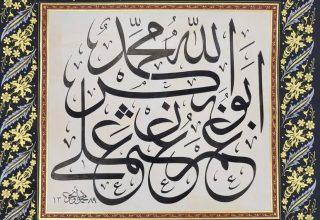 الله محمد
ابو بكر
عمر عثمان علي